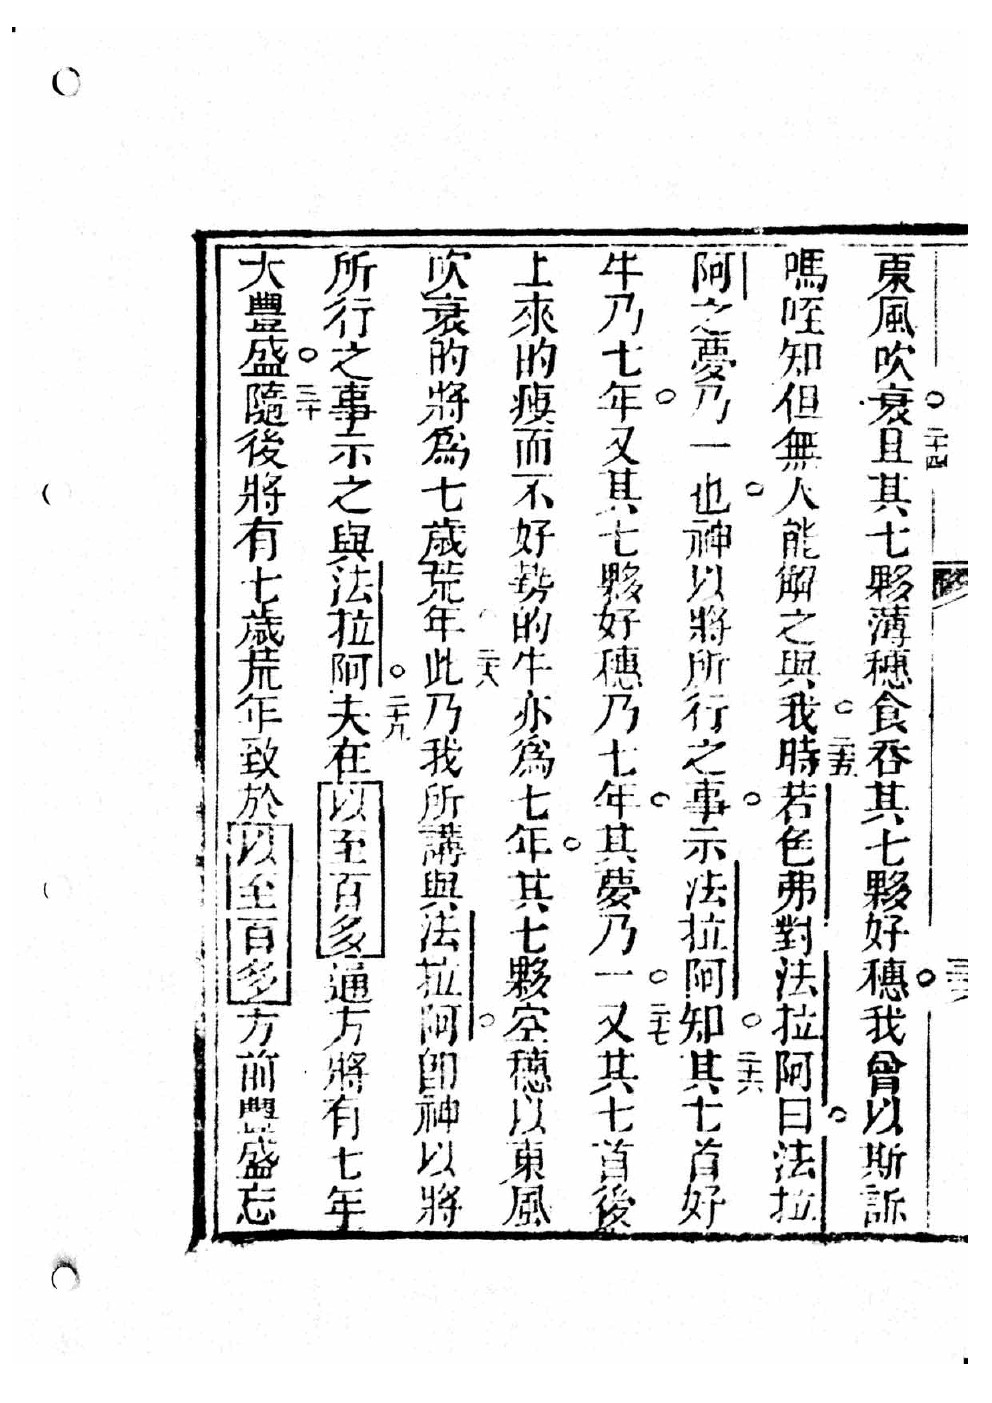 東風吹衰○二十四且其七夥薄穗食吞其七夥好穗○我曾以斯訴
嗎咥知但無人能解之與我○二十五時若色弗對法拉阿曰○法拉
阿之夢乃一也○神以將所行之事○示法拉阿知○二十六其七首好
牛乃七年○又其七夥好穗乃七年○其夢乃一○二十七又其七首後
上來的瘦而不好勢的牛亦為七年○其七夥空穗以東風
吹衰的將為七歲荒年○二十八此乃我所講與法拉阿○卽神以將
所行之事示之與法拉阿○二十九夫在以至百多通方將有七年
大豐盛○三十隨後將有七歲荒年致於以至百多方前豐盛忘